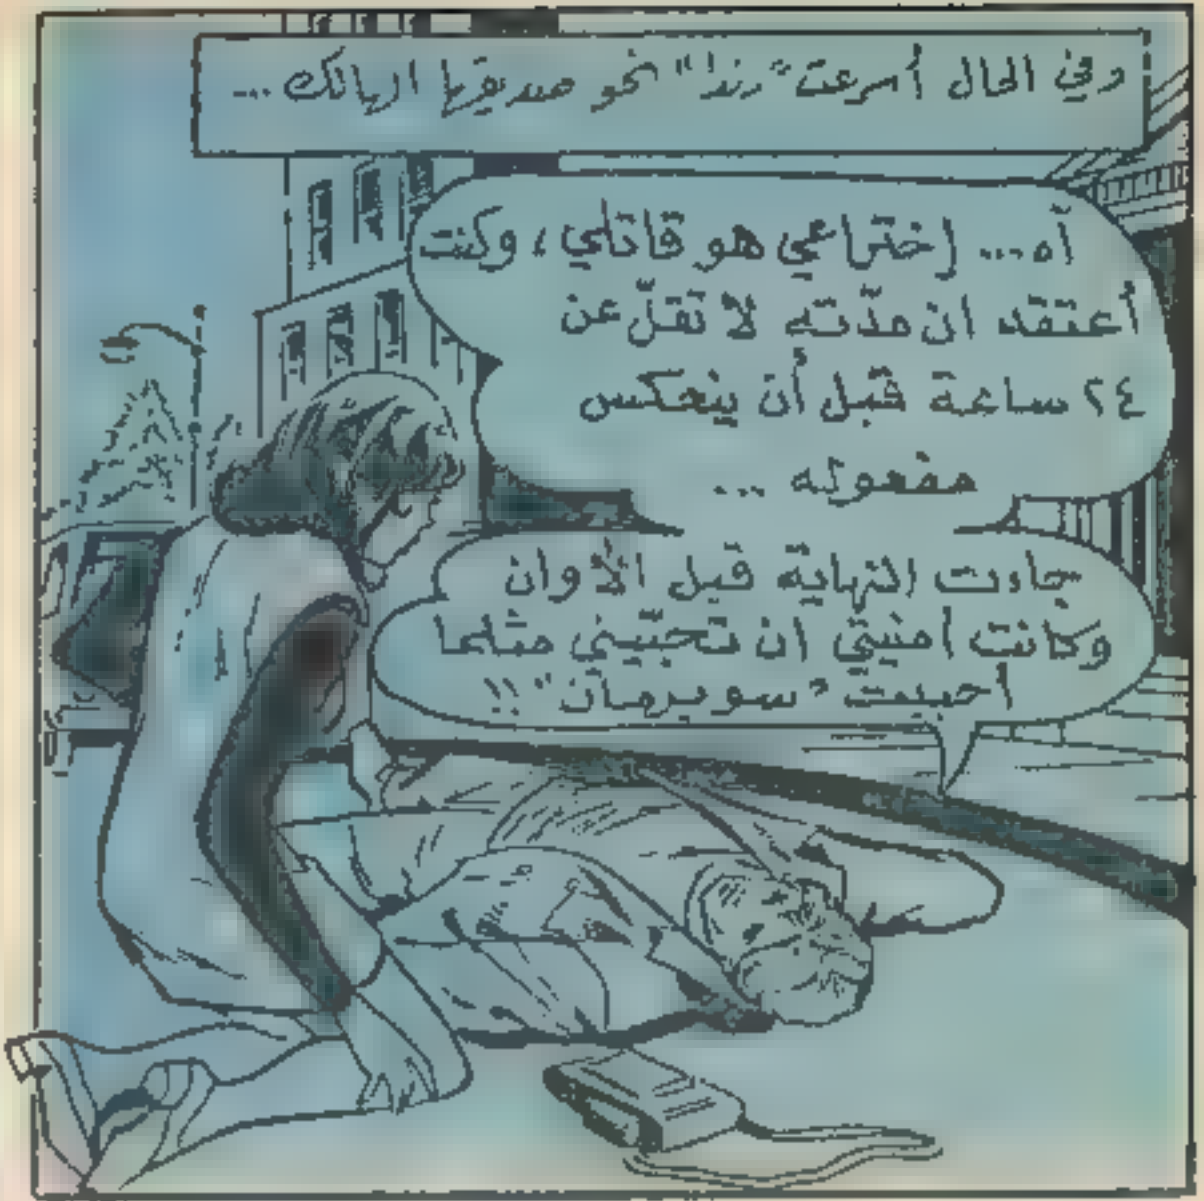 وفي الحال أسرعت "رندا" نحو صديقها الهالك ...
آه ... إختراعي هو قاتلي، وكنت
أعتقد ان مدّته لا تقلّ عن
٢٤ ساعة قبل أن ينعكس
مفعوله ...
جاءت النهاية قبل الأوان
وكانت أمنيتي ان تحبّيني مثلما
أحببت "سوبرمان" !!